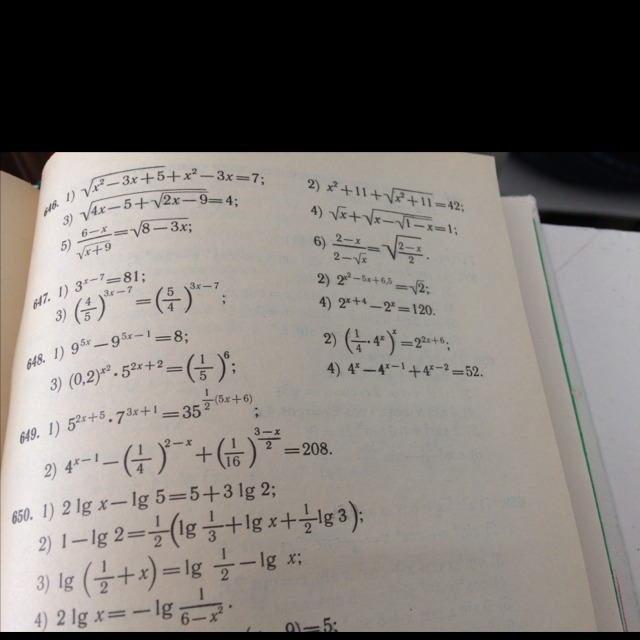 646. 1) √(x² − 3x + 5) + x² − 3x = 7; 2) x² + 11 + √(x² + 11) = 42;
3) √(4x − 5 + √(2x − 9)) = 4; 4) √x + √(x − √(1 − x)) = 1;
5) (6 − x)/√(x + 9) = √(8 − 3x); 6) (2 − x)/(2 − √x) = √((2 − x)/2).
647. 1) 3^(x − 7) = 81; 2) 2^(x² − 5x + 6,5) = √2;
3) (4/5)^(3x − 7) = (5/4)^(3x − 7); 4) 2^(x + 4) − 2^x = 120.
648. 1) 9^(5x) − 9^(5x − 1) = 8; 2) (1/4 · 4^x)^x = 2^(2x + 6);
3) (0,2)^(x²) · 5^(2x + 2) = (1/5)^6; 4) 4^x − 4^(x − 1) + 4^(x − 2) = 52.
649. 1) 5^(2x + 5) · 7^(3x + 1) = 35^(1/2 (5x + 6));
2) 4^(x − 1) − (1/4)^(2 − x) + (1/16)^((3 − x)/2) = 208.
650. 1) 2 lg x − lg 5 = 5 + 3 lg 2;
2) 1 − lg 2 = 1/2 (lg 1/3 + lg x + 1/2 lg 3);
3) lg (1/2 + x) = lg 1/2 − lg x;
4) 2 lg x = − lg 1/(6 − x²).
9) = 5;